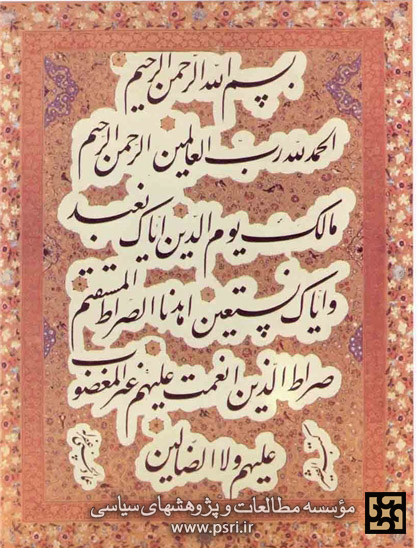 بسم الله الرحمن الرحیم
الحمد لله رب العالمین الرحمن الرحیم
مالک یوم الدین ایاک نعبد
وایاک نستعین اهدنا الصراط المستقیم
صراط الذین انعمت علیهم غیر المغضوب
علیهم ولا الضالین
مؤسسه مطالعات و پژوهشهای سیاسی
www.psri.ir